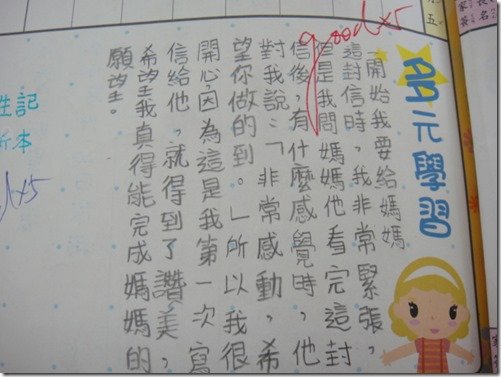 多元學習
一開始我要給媽媽
這封信時，我非常緊張，
但是我問媽媽他看完這封
信後，有什麼感覺時，他
對我說：「非常感動，希
望你做的到。」所以我很
開心，因為這是我第一次寫
信給他，就得到了讚美，
希望我真得能完成媽媽的
願望。
goodx5
五